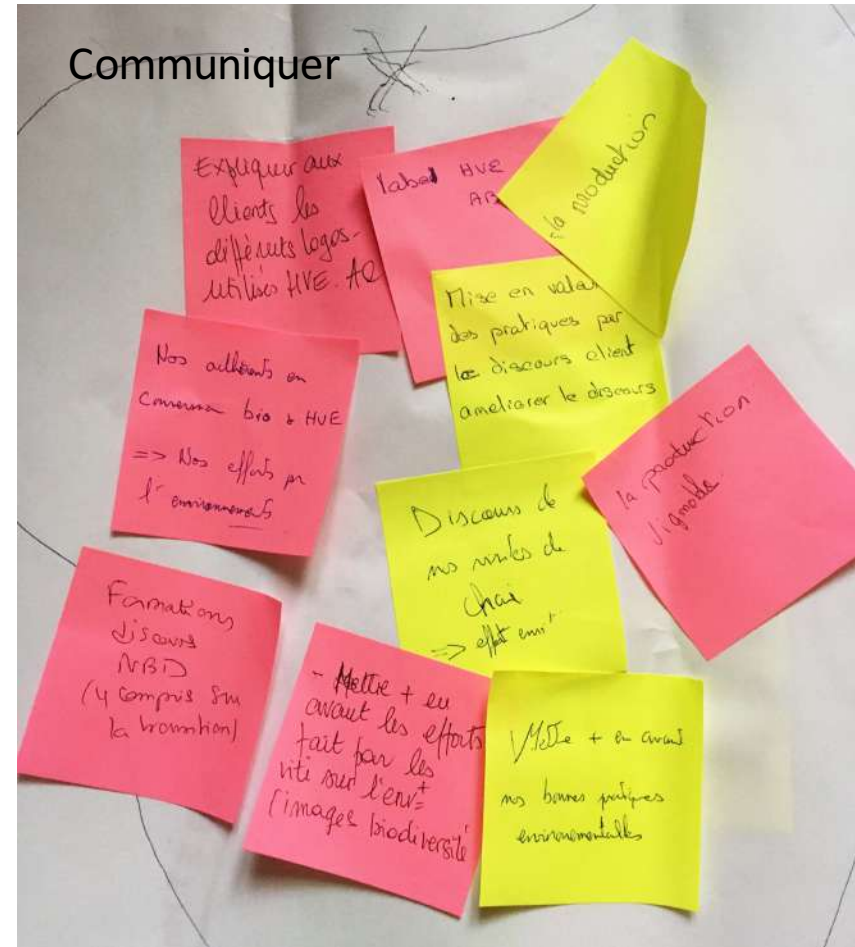 Communiquer
Expliquer aux
Clients les
différents logos
utilisés HVE. AB
label HVE
AB
la production
Mise en valeur
des pratiques par
le discours client
ameliorer le discours
Nos adhérents en
Conversion bio & HVE
=> Nos efforts pr
l'environnement
la production
vignoble.
Discours de
nos visites de
chai
=> effort envt
Formations
discours
NBD
(y compris sur
la transition)
- Mettre + en
avant les efforts
fait par les
viti sur l'envt
(images biodiversité
Mettre + en avant
nos bonnes pratiques
environnementales